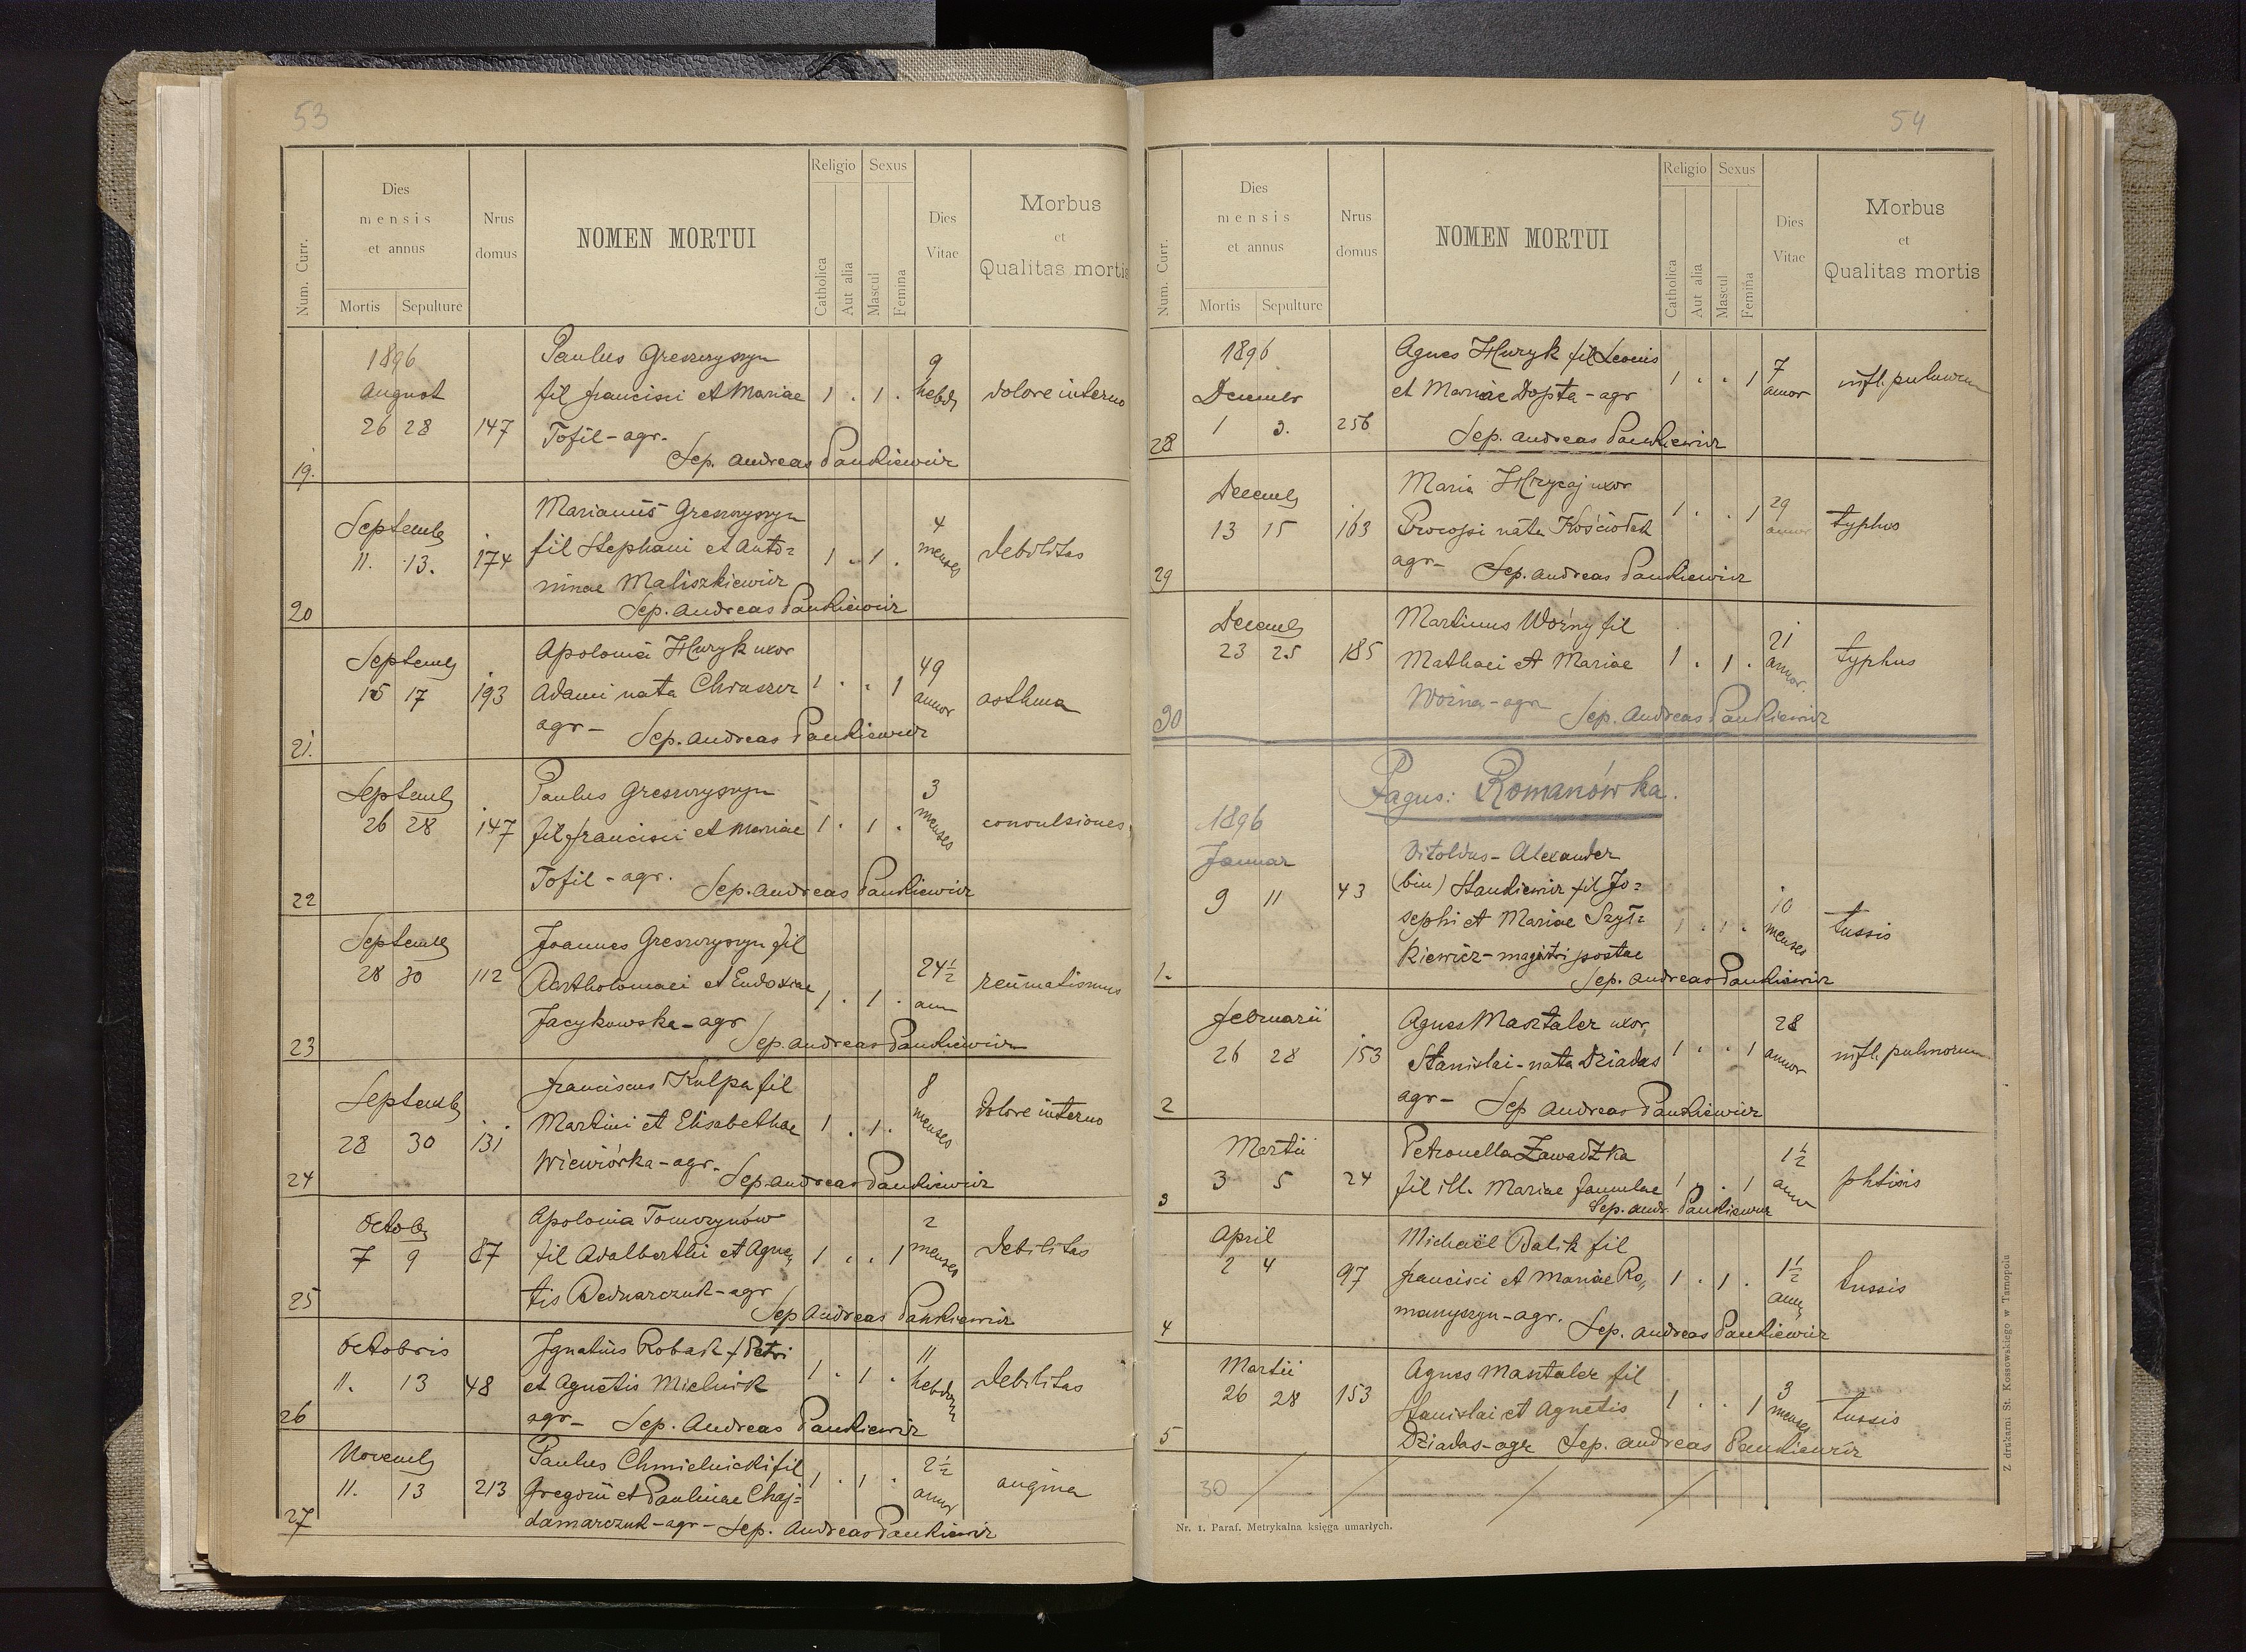 53
Num. Curr.
Dies
mensis
et annus
Mortis
Sepulture
Nrus
domus
NOMEN MORTUI
Religio
Catholica
Aut alia
Sexus
Mascul
Femina
Dies
Vitae
Morbus
et
Qualitas mortis
1896
August
26 28
147
19.
Paulus Greszczyszyn
fil francisci et Mariae
Tofil - agr.
Sep. Andreas Pankiewicz
1 . 1 .
9
hebd
dolore interno
Septemb
11. 13.
174
20
Marianus Greszczyszyn
fil Stephani et Anto=
ninae Maliszkiewicz
Sep. Andreas Pankiewicz
1 . 1 .
4
menses
debilitas
Septemb
15 17
193
21.
Apolonia Huryk uxor
Adami nata Chruszcz
agr -
Sep. Andreas Pankiewicz
1 . . 1
49
annor
asthma
Septemb
26 28
147
22
Paulus Greszczyszyn
fil francisci et Mariae
Tofil - agr.
Sep. Andreas Pankiewicz
1 . 1 .
3
menses
convulsiones
Septemb
28 30
112
23
Joannes Greszczyszyn fil
Bartholomaei et Eudoxiae
Jacykowska - agr
Sep. Andreas Pankiewicz
1 . 1 .
24 1/2
ann
reumatismus
Septemb
28 30
131
24
franciscus Kulpa fil
Martini et Elisabethae
Wiewiórka - agr.
Sep. Andreas Pankiewicz
1 . 1 .
8
menses
dolore interno
Octob
7 9
87
25
Apolonia Tomczynów
fil Adalberthi et Agne,,
tis Bednarczuk - agr
Sep Andreas Pankiewicz
1 . . 1
2
menses
debilitas
Octobris
11. 13
48
26
Ignatius Robak f Petri
et Agnetis Mielnik
agr -
Sep. Andreas Pankiewicz
1 . 1 .
11
hebdom
debilitas
Novemb
11. 13
213
27
Paulus Chmielnicki fil
Gregorii et Paulinae Chaj=
damarczuk - agr - Sep. Andreas Pankiewicz
1 . 1 .
2 1/2
annor
angina
54
Num. Curr.
Dies
mensis
et annus
Mortis
Sepulture
Nrus
domus
NOMEN MORTUI
Religio
Catholica
Aut alia
Sexus
Mascul
Femina
Dies
Vitae
Morbus
et
Qualitas mortis
1896
Decembr
1 3.
256
28
Agnes Huryk fil Leonis
et Mariae Dopta - agr
Sep. Andreas Pankiewicz
1 . . 1
7
annor
infl. pulmorum
Decemb
13 15
163
29
Maria Hrycaj uxor
Procopi nata Kościołek
agr -
Sep. Andreas Pankiewicz
1 . . 1
29
annor
typhus
Decemb
23 25
185
30
Martinus Woźny fil
Mathaei et Mariae
Woźna - agr
Sep. Andreas Pankiewicz
1 . 1 .
21
annor.
typhus
Pagus: Romanówka.
1896
Januar
9 11
43
1.
Vitoldus - Alexander
(bin) Stankiewicz fil Jo=
sephi et Mariae Szyt=
kiewicz - magistri postae
Sep. Andreas Pankiewicz
1 . 1 .
10
menses
tussis
februarii
26 28
153
2
Agnes Masztaler uxor
Stanislai - nata Dziadas
agr -
Sep Andreas Pankiewicz
1 . . 1
28
annor
infl. pulmorum
Martii
3 5
24
3
Petronella Zawadzka
fil ill. Mariae famulae
Sep. Andr. Pankiewicz
1 . . 1
1 1/2
annor
phtisis
April
2 4
97
4
Michaël Balik fil
francisci et Mariae Ro,,
manyszyn - agr.
Sep. Andreas Pankiewicz
1 . 1 .
1 1/2
ann
tussis
Martii
26 28
153
5
Agnes Masztaler fil
Stanislai et Agnetis
Dziadas - agr Sep. Andreas Pankiewicz
1 . . 1
3
menses
tussis
30
Nr. 1. Paraf. Metrykalna księga umarłych.
Z drukarni St. Kossowskiego w Tarnopolu